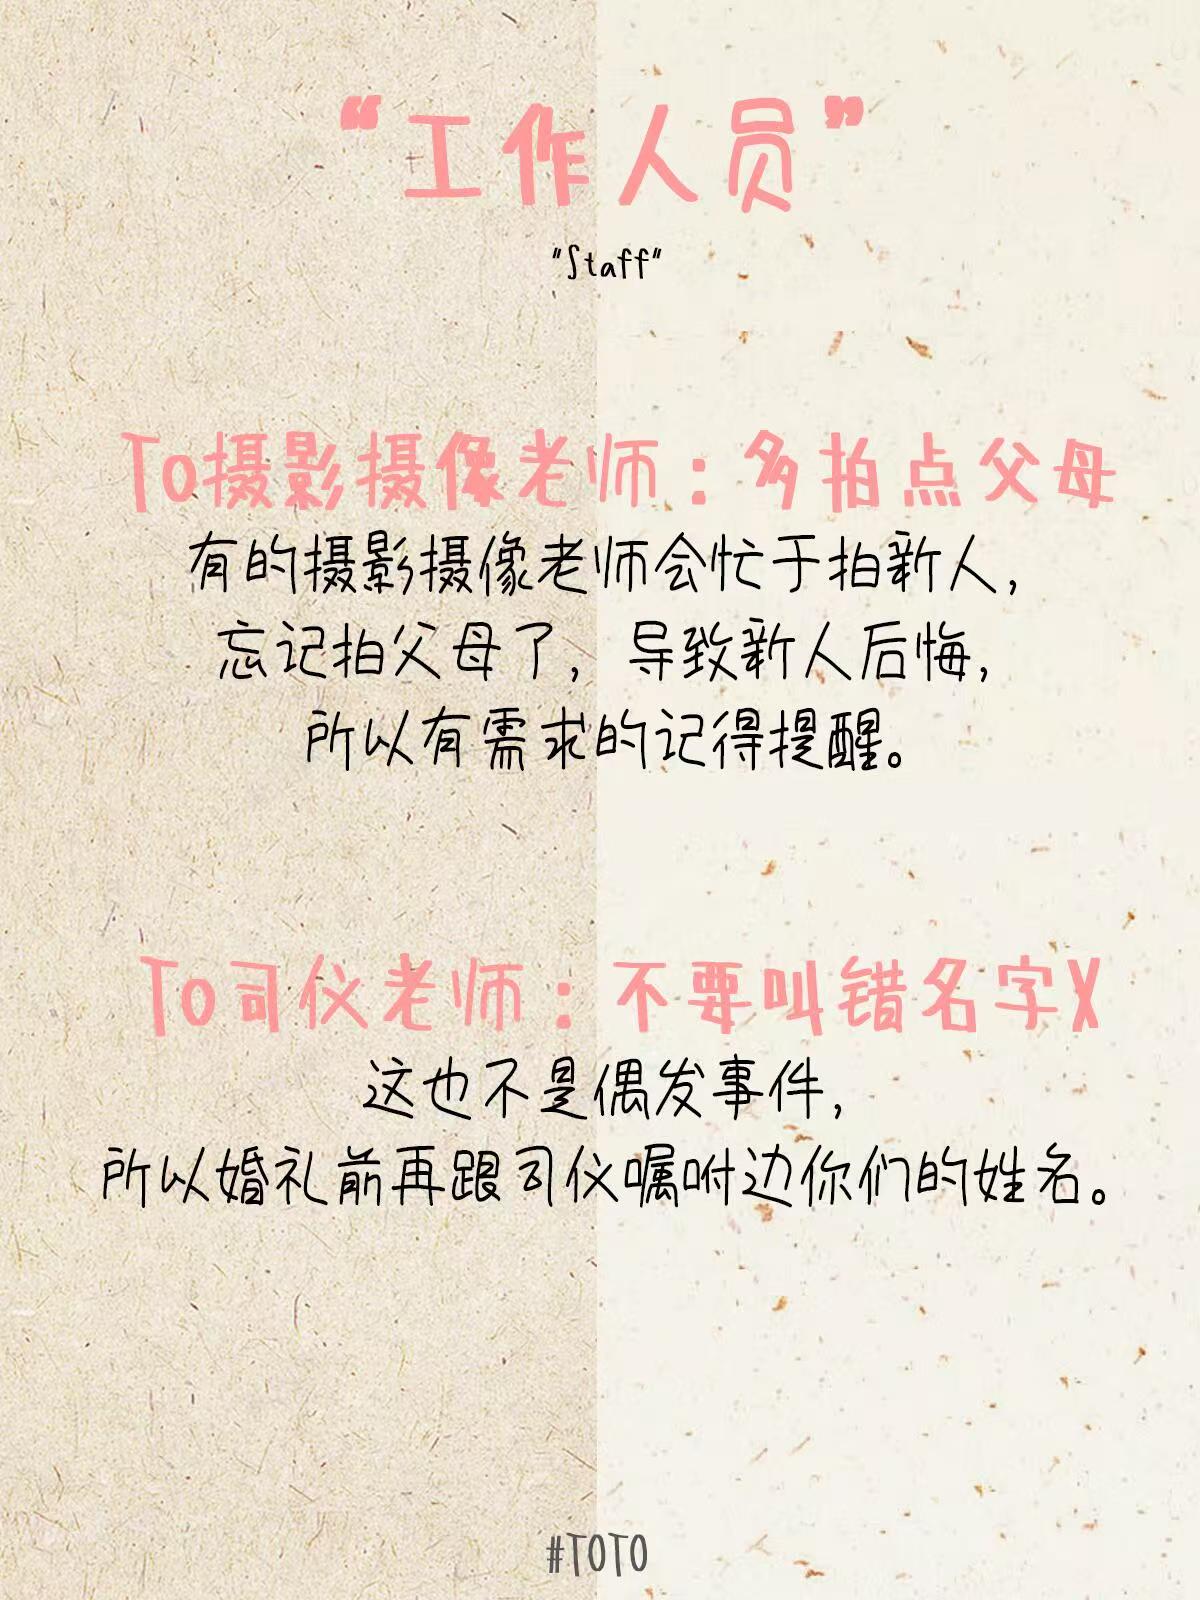 “工作人员”
"Staff"
To摄影摄像老师：多拍点父母
有的摄影摄像老师会忙于拍新人，
忘记拍父母了，导致新人后悔，
所以有需求的记得提醒。
To司仪老师：不要叫错名字X
这也不是偶发事件，
所以婚礼前再跟司仪嘱咐边你们的姓名。
#TOTO